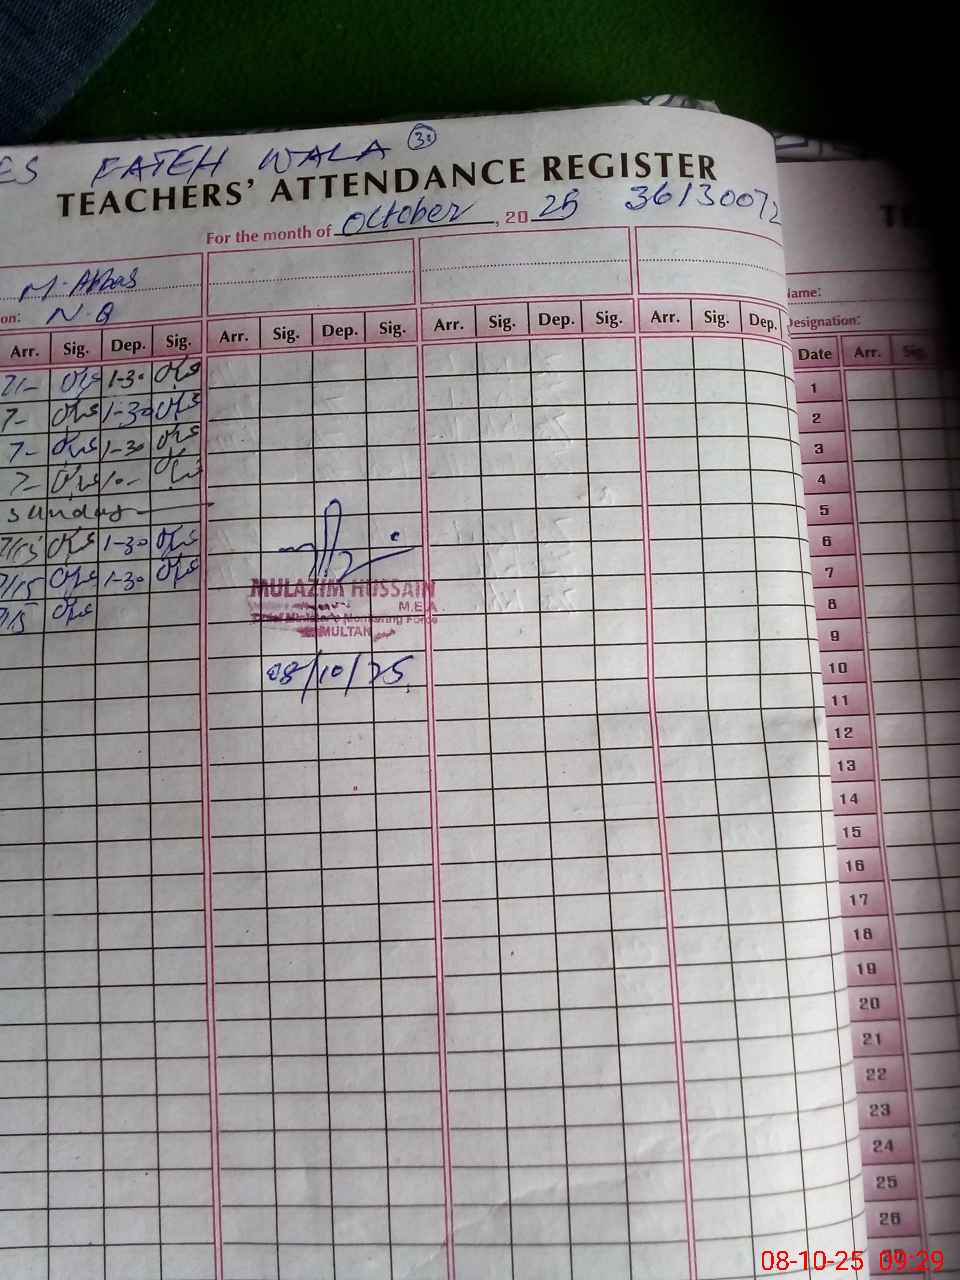 ES FATEH WALA 3:
TEACHERS' ATTENDANCE REGISTER
For the month of October, 2025 3613007
M. Abbas
on: N.Q
Name:
Designation:
Arr. Sig. Dep. Sig. Arr. Sig. Dep. Sig. Arr. Sig. Dep. Sig. Arr. Sig. Dep.
Date Arr. Sig.
7/- 1-30
7- 1-30
7- 1-30
7- 10-
Sunday
7/15 1-30
7/15 1-30
7/15
MULAZIM HUSSAIN
M.E.A
Chief Minister's Monitoring Force
MULTAN
08/10/25
1
2
3
4
5
6
7
8
9
10
11
12
13
14
15
16
17
18
19
20
21
22
23
24
25
26
08-10-25 09:29